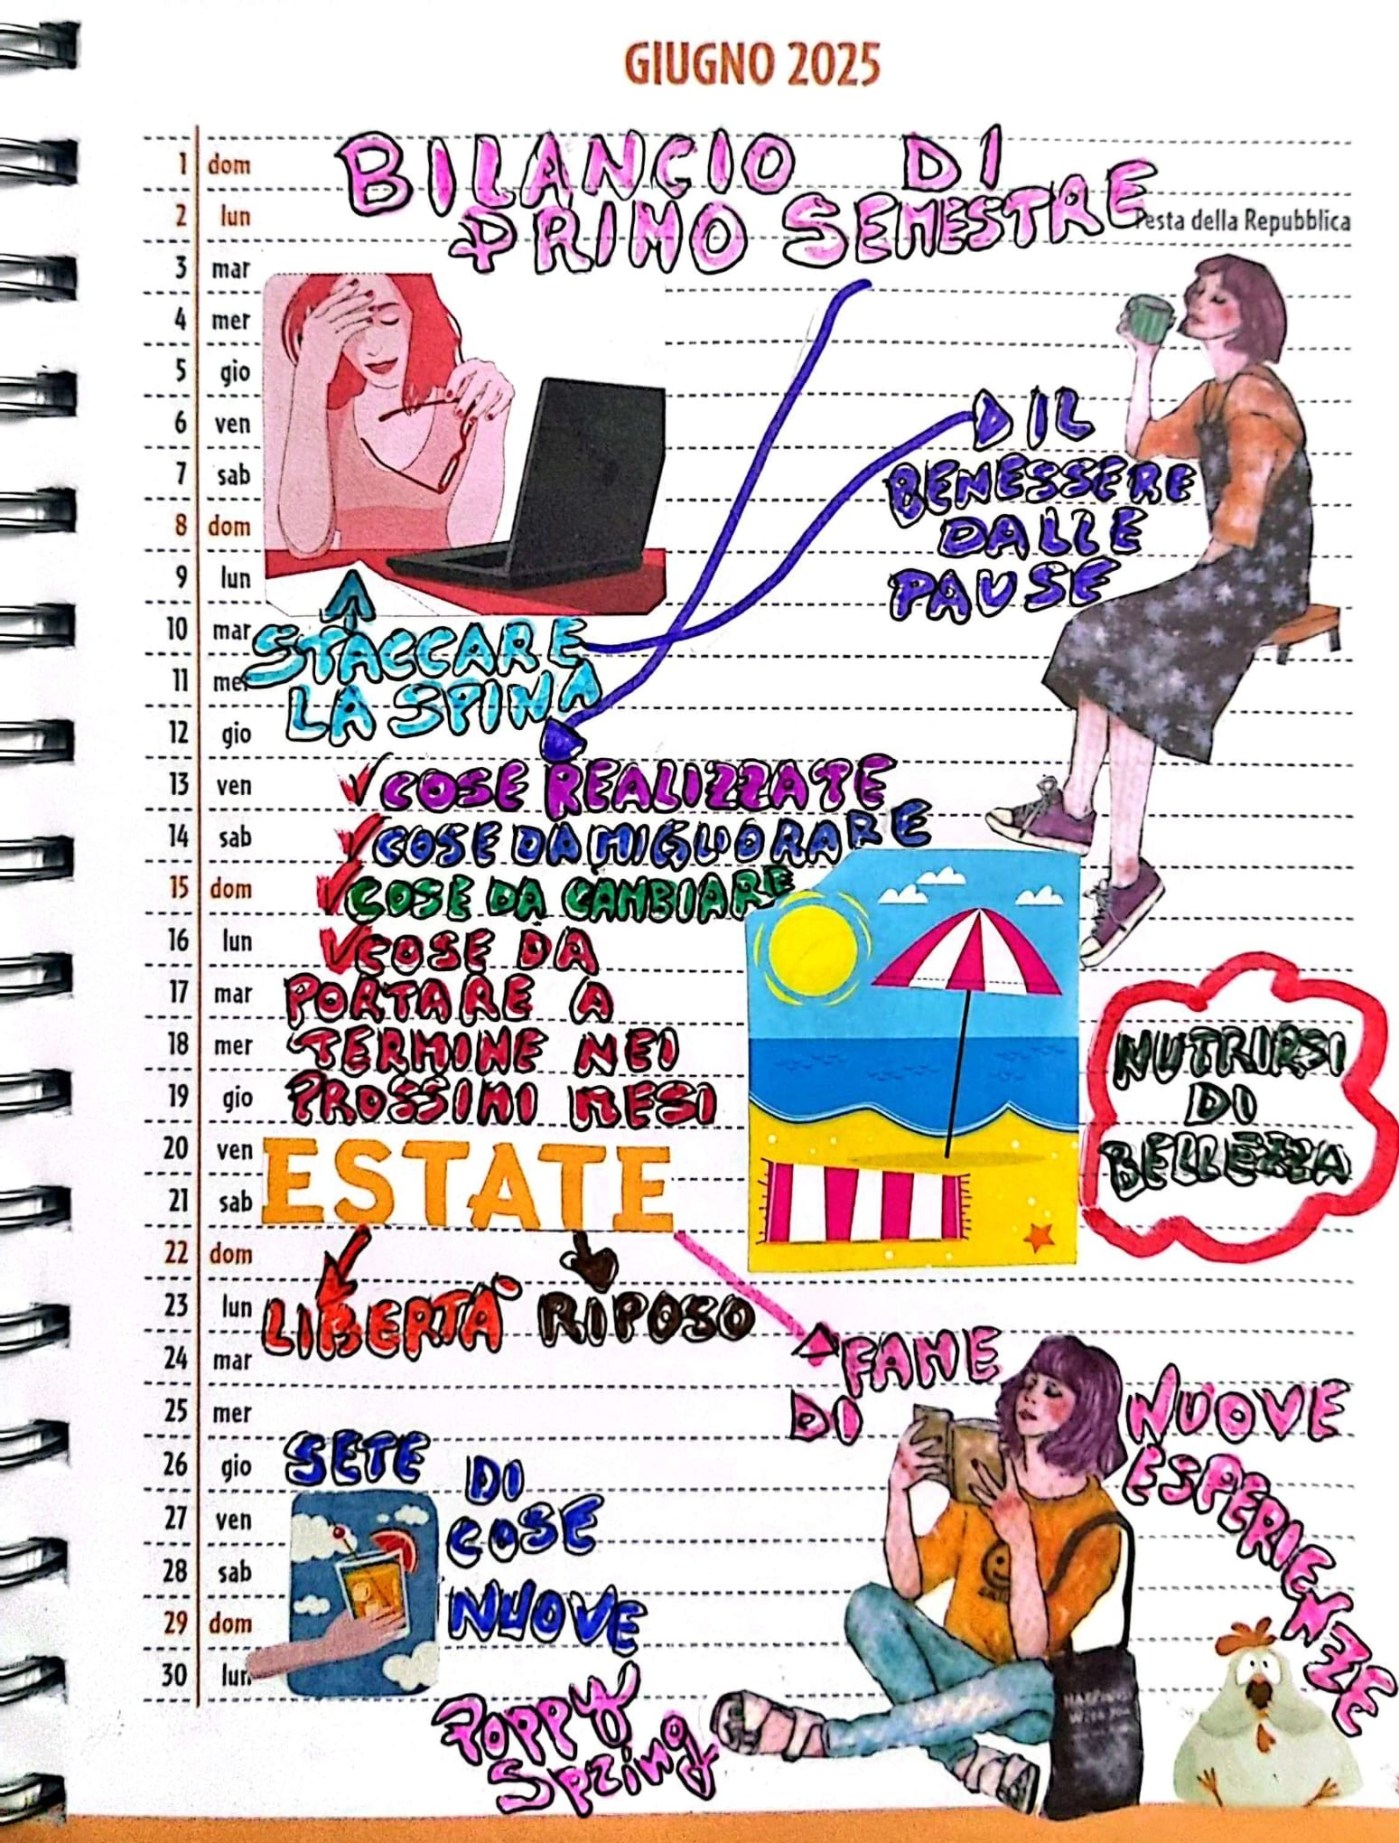 GIUGNO 2025
1 dom
2 lun
3 mar
4 mer
5 gio
6 ven
7 sab
8 dom
9 lun
10 mar
11 mer
12 gio
13 ven
14 sab
15 dom
16 lun
17 mar
18 mer
19 gio
20 ven
21 sab
22 dom
23 lun
24 mar
25 mer
26 gio
27 ven
28 sab
29 dom
30 lun
BILANCIO DI
PRIMO SEMESTRE
Festa della Repubblica
IL
BENESSERE
DALLE
PAUSE
STACCARE
LA SPINA
COSE REALIZZATE
COSE DA MIGLIORARE
COSE DA CAMBIARE
COSE DA
PORTARE A
TERMINE NEI
PROSSIMI MESI
NUTRIRSI
DI
BELLEZZA
ESTATE
LIBERTA'
RIPOSO
FAME
DI
NUOVE
ESPERIENZE
SETE DI
COSE
NUOVE
Poppy
Spring